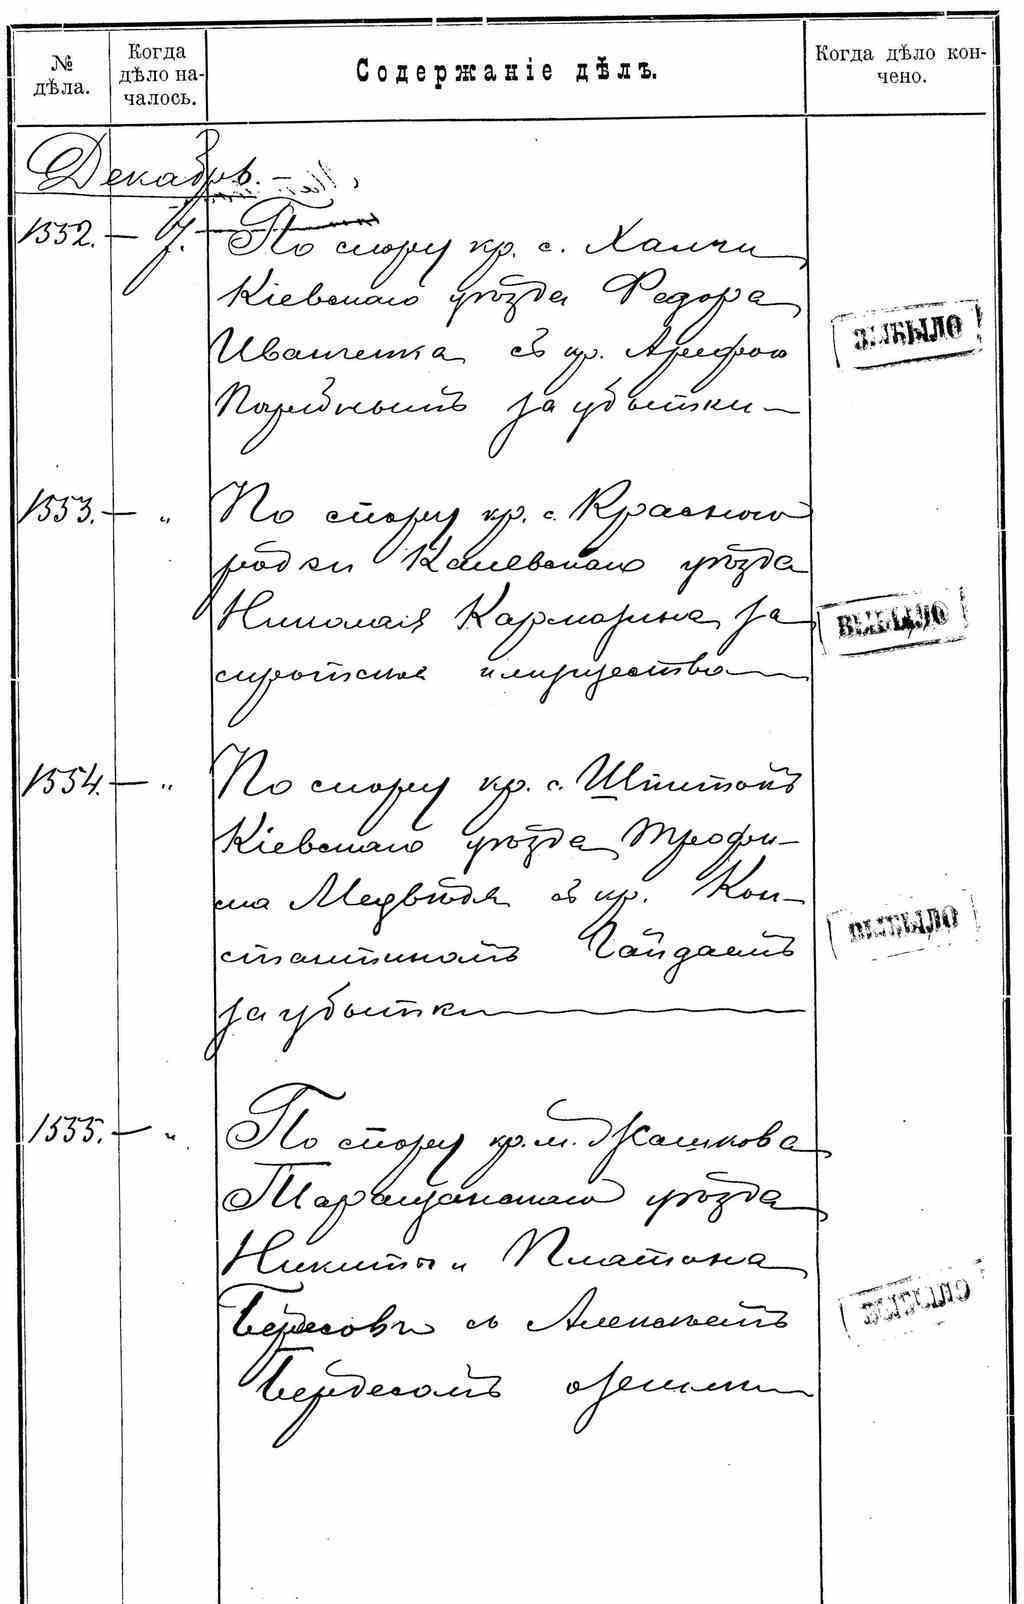 № дѣла.
Когда дѣло началось.
Содержаніе дѣлъ.
Когда дѣло кончено.
Декабрь.
1552. — 7. По спору кр. с. Халчи
Кіевскаго уѣзда Федора
Иванченка съ кр. Арефою
за убытки —
ВЫБЫЛО
1553. — " По спору кр. с. Красного
родки Каневскаго уѣзда
Николая Кармазина за
сиротское имущество —
ВЫБЫЛО
1554. — " По спору кр. с. Шпитекъ
Кіевскаго уѣзда Трофи-
ма Медвѣдя съ кр. Кон-
стантиномъ Гайдаемъ
за убытки —
ВЫБЫЛО
1555. — " По спору кр. м. Жашкова
Таращанскаго уѣзда
Никиты и Платона
съ Алексѣемъ
Бердесомъ о земли —